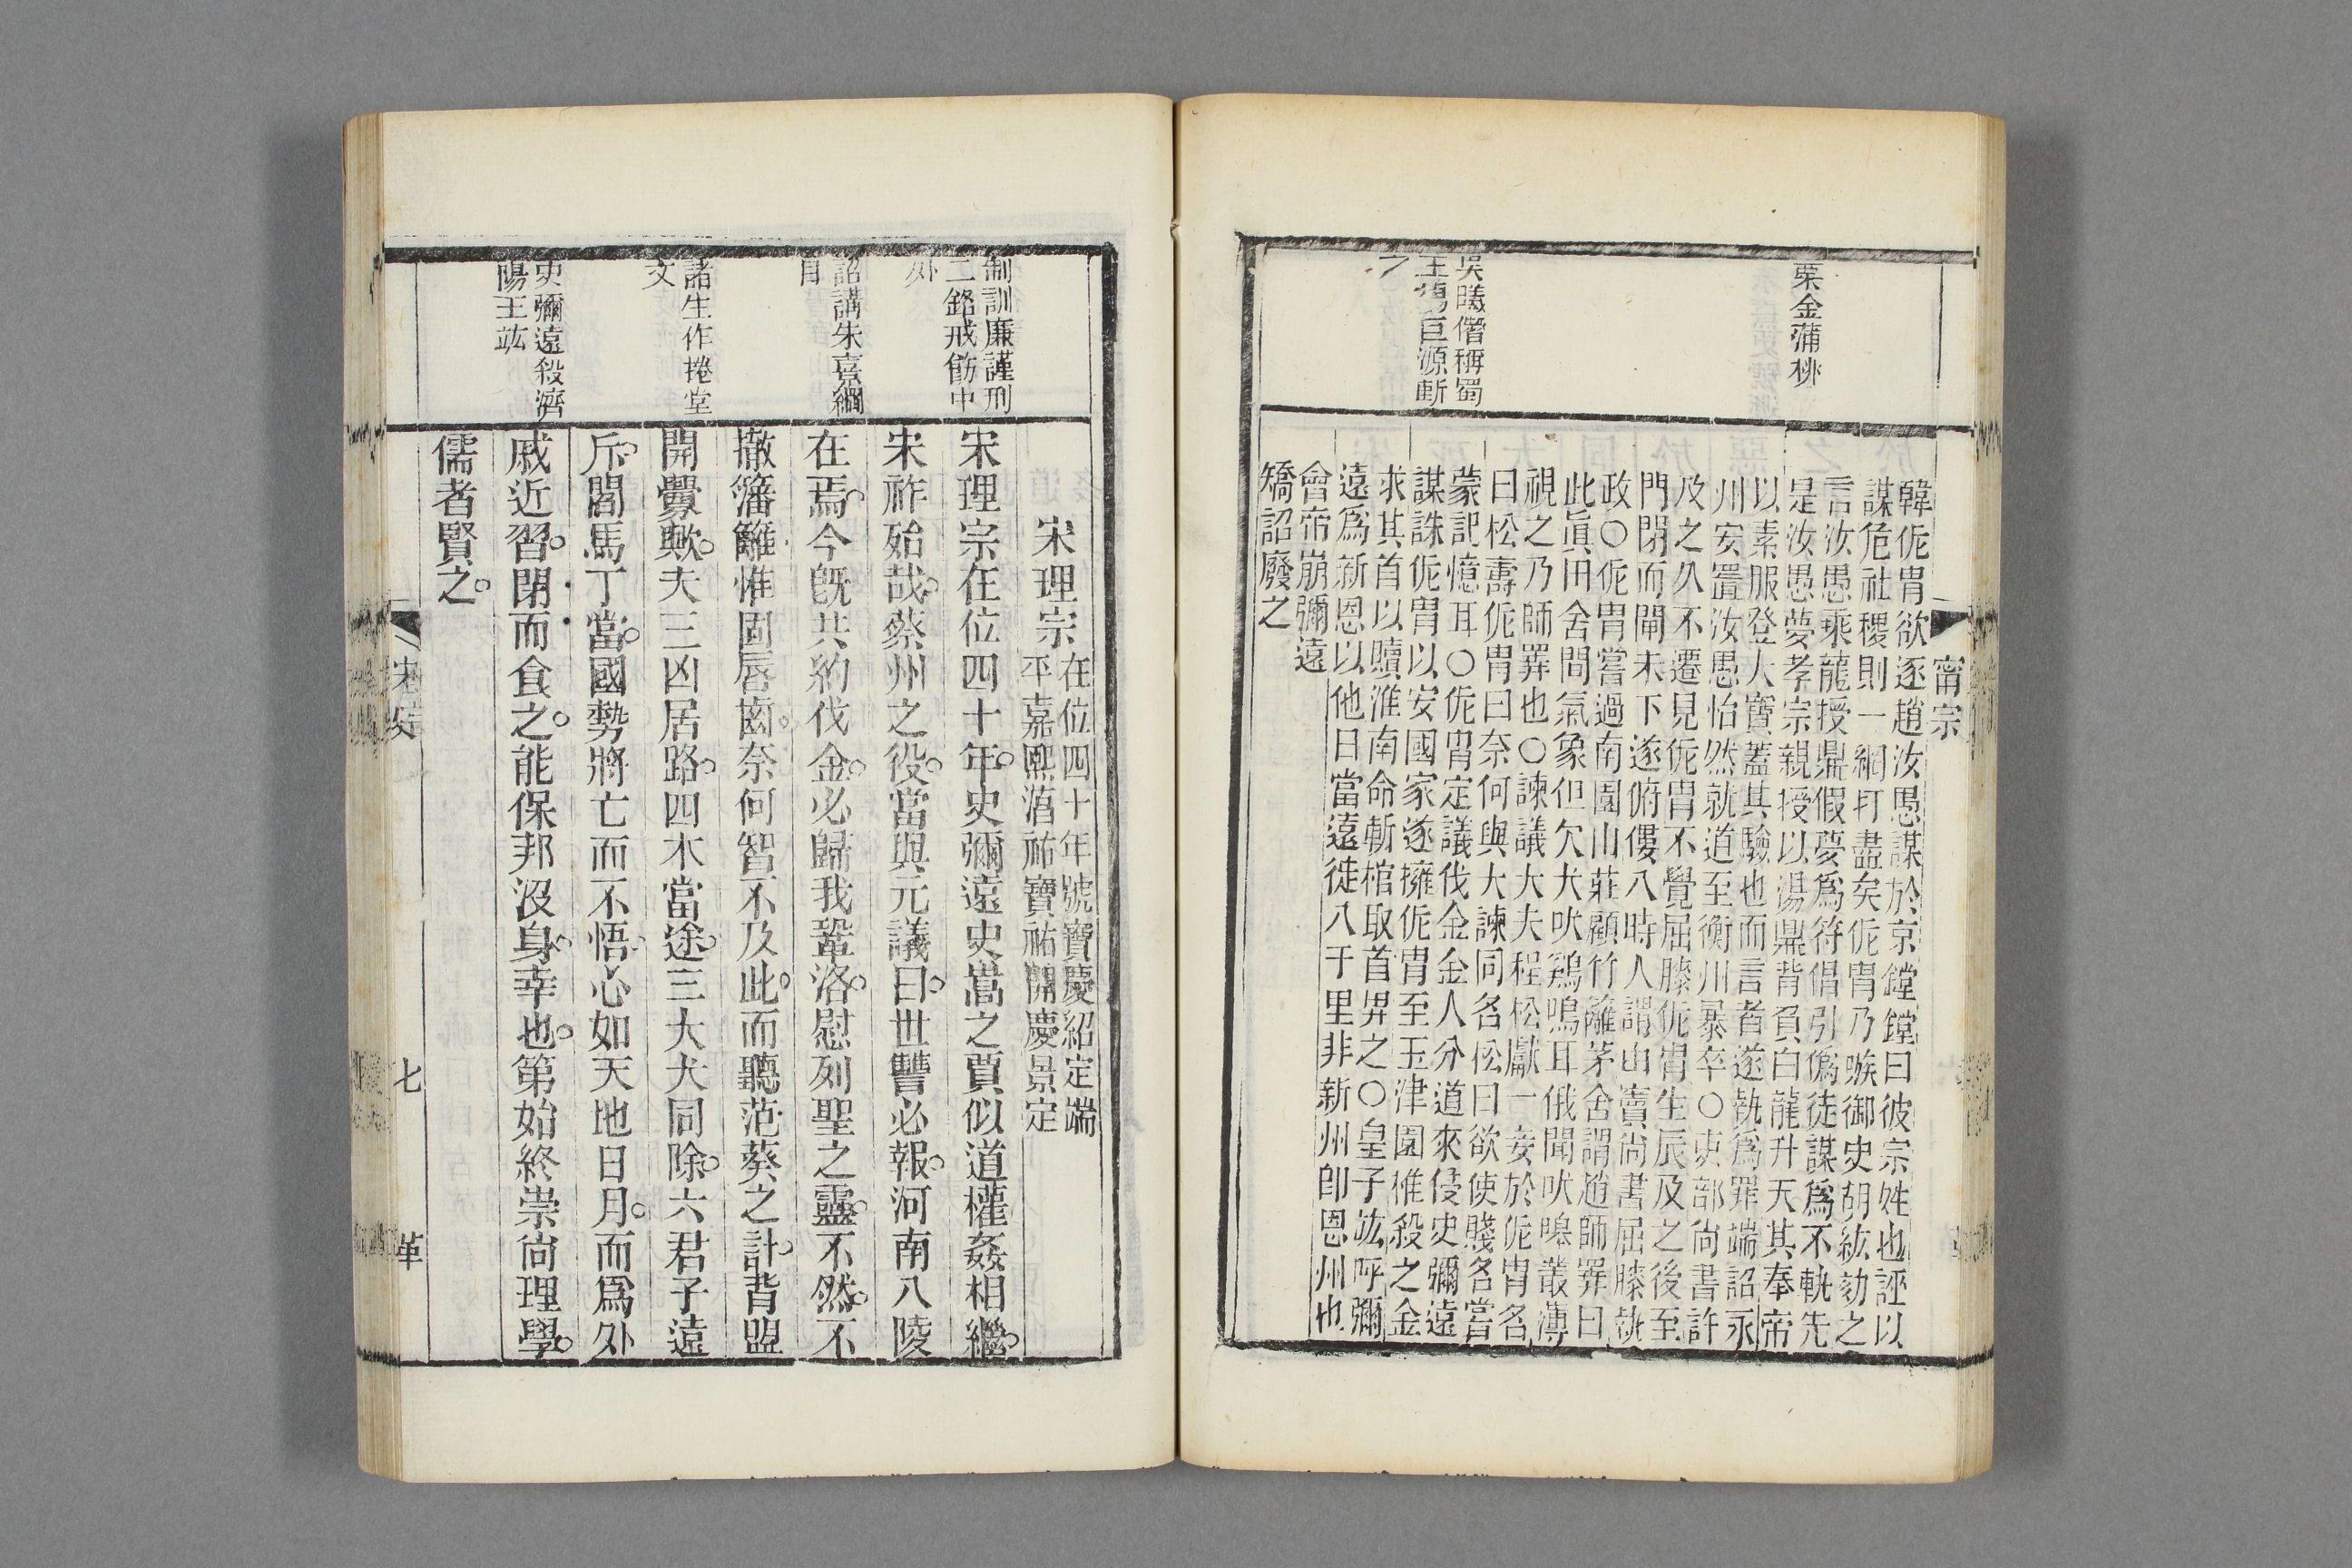 甯宗
栗金蒲桃
吳曦僭稱蜀
王楊巨源斬
之
韓侂胄欲逐趙汝愚謀於京鏜鏜曰彼宗姓也誣以
謀危社稷則一網打盡矣侂胄乃嗾御史胡紘劾之
言汝愚乘龍授鼎假夢爲符倡引僞徒謀爲不軌先
是汝愚夢孝宗親授以湯鼎背負白龍升天其奉帝
以素服登大寶蓋其驗也而言者遂執爲罪端詔永
州安置汝愚怡然就道至衡州暴卒○吏部尚書許
及之久不遷見侂胄不覺屈膝侂胄生辰及之後至
門閉而閘未下遂俯僂八時人謂由竇尚書屈膝執
政○侂胄嘗過南園山莊顧竹籬茅舍謂趙師羼曰
此眞田舍間氣象但欠犬吠鷄鳴耳俄聞吠嘷叢薄
視之乃師羼也○諫議大夫程松獻一妾於侂胄名
曰松壽侂胄曰奈何與大諫同名松曰欲使賤名當
蒙記憶耳○侂胄定議伐金金人分道來侵史彌遠
謀誅侂胄以安國家遂擁侂胄至玉津園椎殺之金
求其首以贖淮南命斬棺取首畀之○皇子竑呼彌
遠爲新恩以他日當遠徒八千里非新州卽恩州也
會帝崩彌遠
矯詔廢之
制訓廉謹刑
二銘戒飭中
外
詔講朱熹綱
目
諸生作捲堂
文
史彌遠殺濟
陽王竑
宋理宗
在位四十年號寶慶紹定端
平嘉熙淳祐寶祐開慶景定
宋理宗在位四十年史彌遠史嵩之賈似道權姦相繼
宋祚殆哉蔡州之役當與元議曰世讐必報河南八陵
在焉今旣共約伐金必歸我鞏洛慰列聖之靈不然不
撤籓籬惟固唇齒奈何智不及此而聽范葵之計背盟
開釁歟夫三凶居路四木當途三大犬同除六君子遠
斥閻馬丁當國勢將亡而不悟心如天地日月而爲外
戚近習閉而食之能保邦沒身幸也第始終崇尚理學
儒者賢之
宋史
七
革